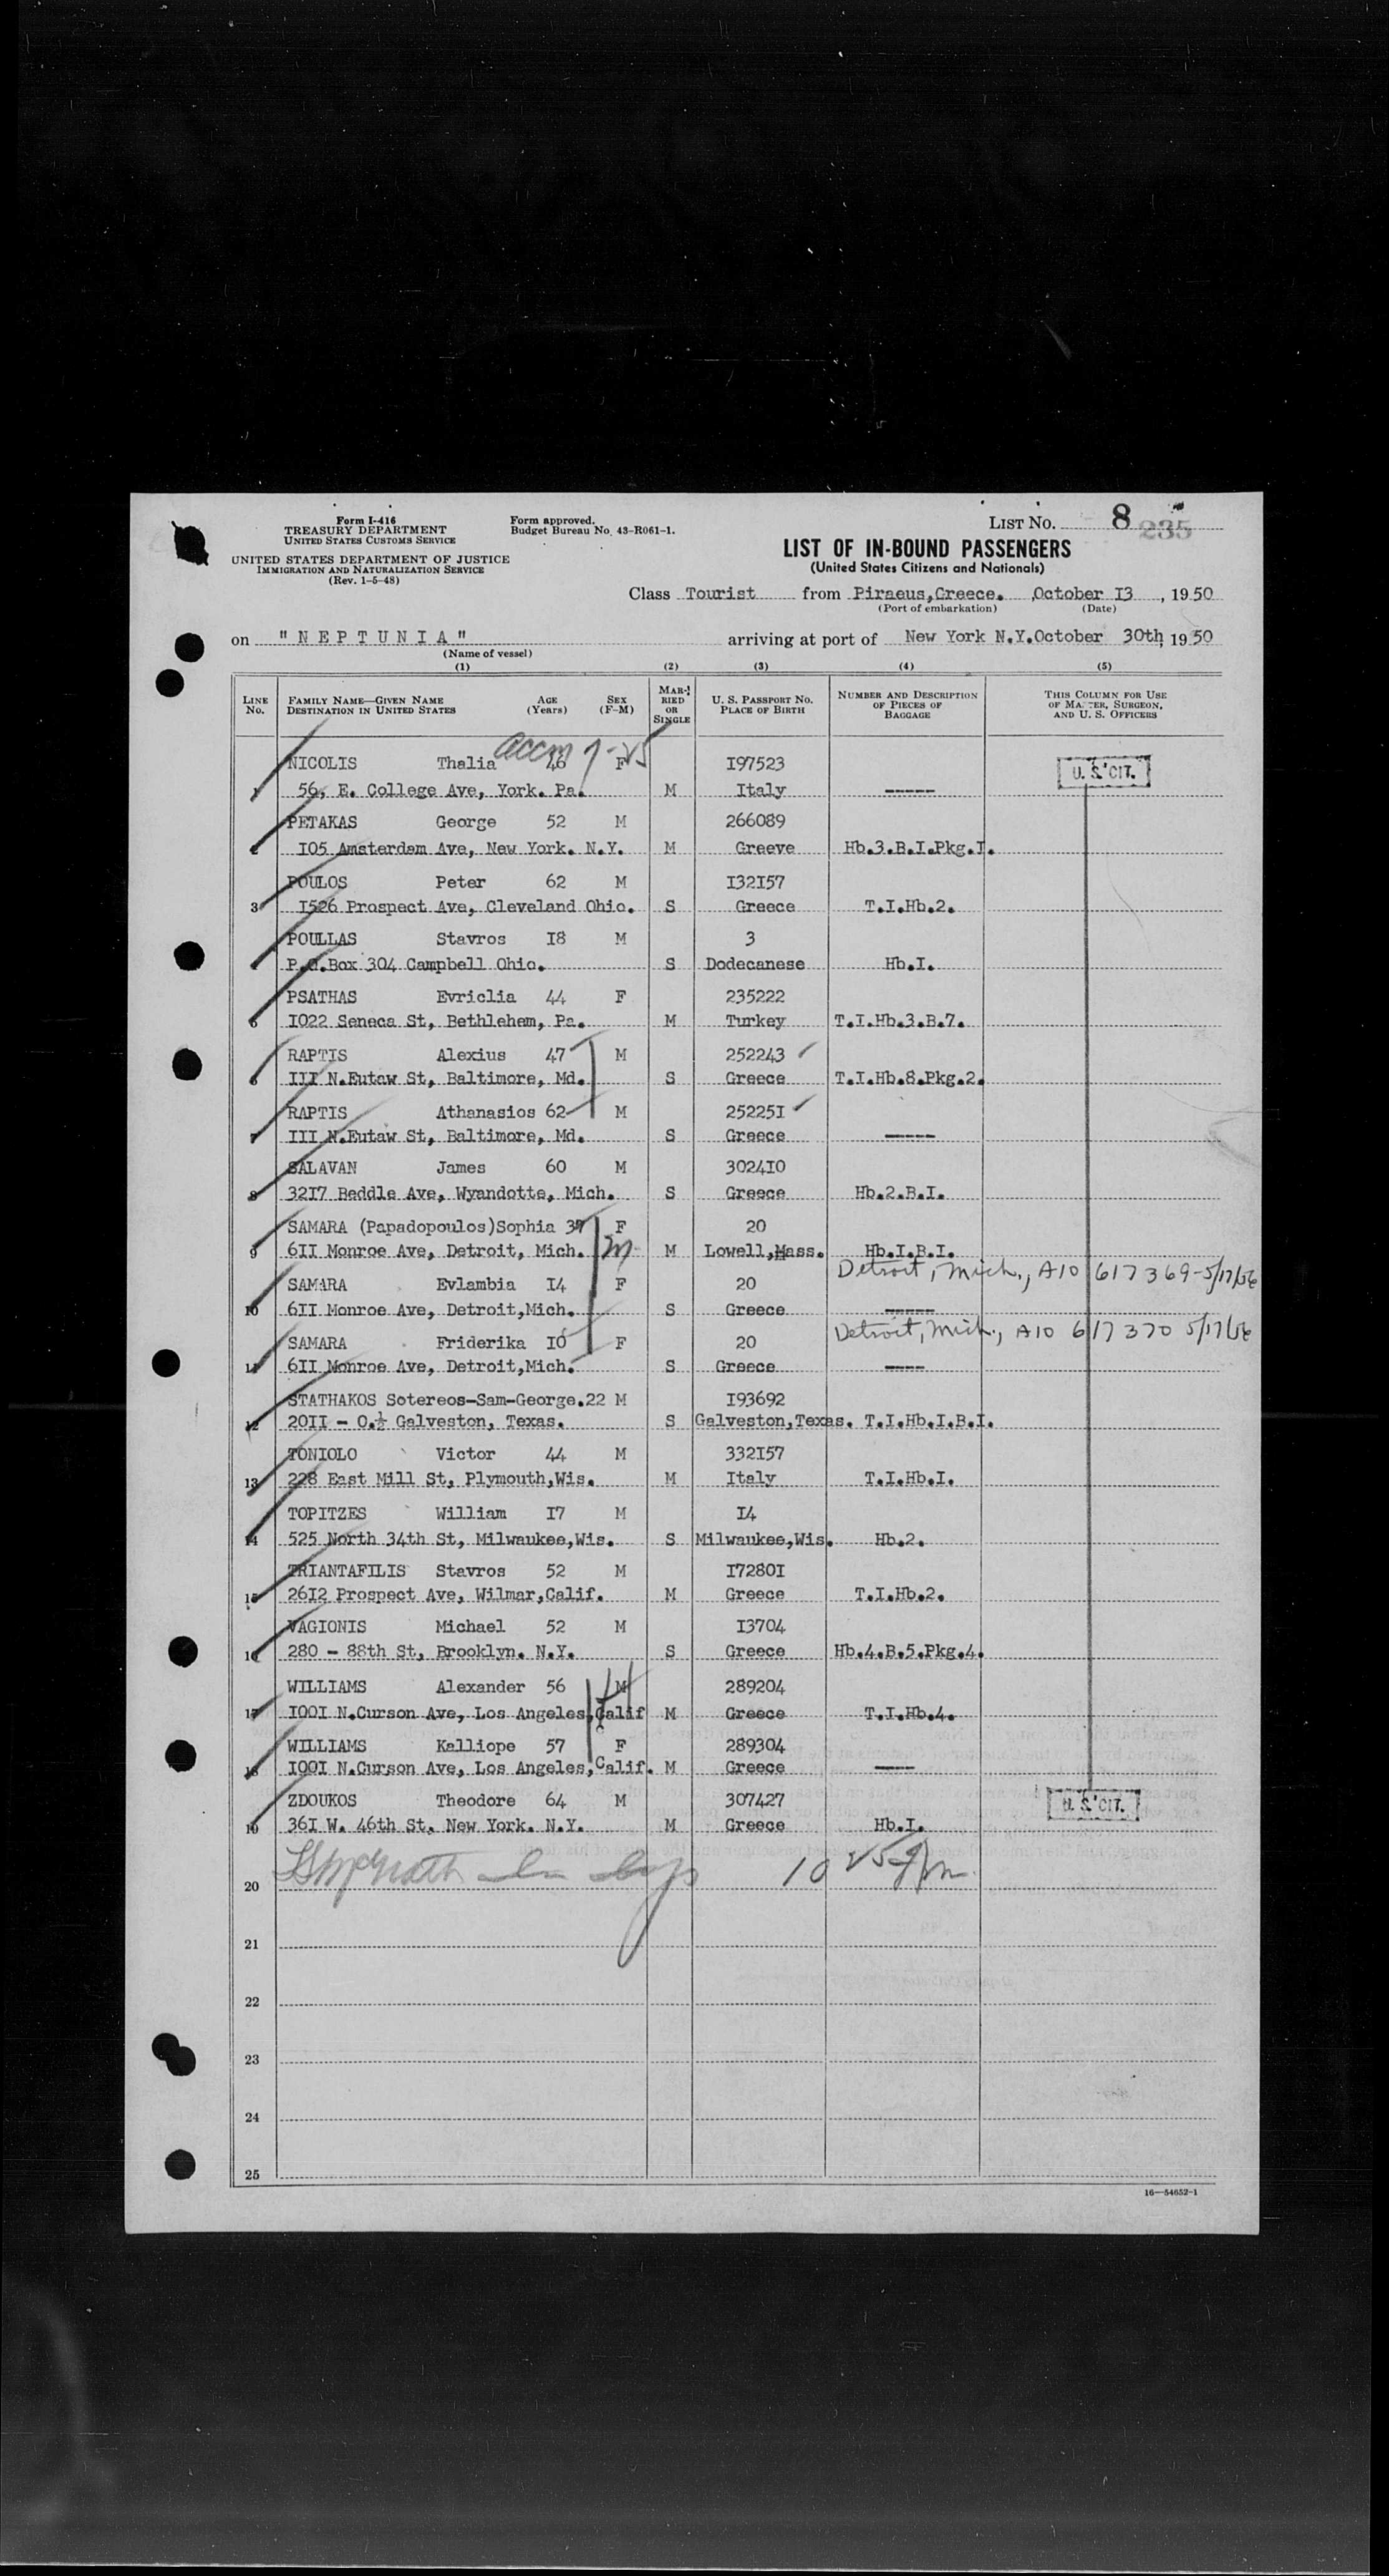 Form I-416
TREASURY DEPARTMENT
UNITED STATES CUSTOMS SERVICE
UNITED STATES DEPARTMENT OF JUSTICE
IMMIGRATION AND NATURALIZATION SERVICE
(Rev. 1-5-48)
Form approved.
Budget Bureau No. 43-R061-1.
LIST No. 8
235
LIST OF IN-BOUND PASSENGERS
(United States Citizens and Nationals)
Class Tourist from Piraeus,Greece. ,October I3 , 1950
(Port of embarkation) (Date)
on "NEPTUNIA" arriving at port of New York N.Y.October 30th, 1950
(Name of vessel)
(1) (2) (3) (4) (5)
LINE No. FAMILY NAME—GIVEN NAME DESTINATION IN UNITED STATES AGE (Years) SEX (F-M) MARRIED OR SINGLE U. S. PASSPORT NO. PLACE OF BIRTH NUMBER AND DESCRIPTION OF PIECES OF BAGGAGE THIS COLUMN FOR USE OF MASTER, SURGEON, AND U. S. OFFICERS
NICOLIS Thalia 46 F I97523 U. S. CIT.
1 56, E. College Ave, York. Pa. M Italy -----
PETAKAS George 52 M 266089
2 I05 Amsterdam Ave, New York. N.Y. M Greeve Hb.3.B.I.Pkg.I.
POULOS Peter 62 M I32I57
3 I526 Prospect Ave, Cleveland Ohio. S Greece T.I.Hb.2.
POULLAS Stavros I8 M 3
4 P.O.Box 304 Campbell Ohio. S Dodecanese Hb.I.
PSATHAS Evriclia 44 F 235222
5 I022 Seneca St, Bethlehem, Pa. M Turkey T.I.Hb.3.B.7.
RAPTIS Alexius 47 M 252243
6 III N.Eutaw St, Baltimore, Md. S Greece T.I.Hb.8.Pkg.2.
RAPTIS Athanasios 62 M 25225I
7 III N.Eutaw St, Baltimore, Md. S Greece -----
SALAVAN James 60 M 3024I0
8 32I7 Beddle Ave, Wyandotte, Mich. S Greece Hb.2.B.I.
SAMARA (Papadopoulos)Sophia 37 F 20
9 6II Monroe Ave, Detroit, Mich. M Lowell,Mass. Hb.I.B.I.
Detroit, Mich., A10 617 369-5/17/56
SAMARA Evlambia I4 F 20
10 6II Monroe Ave, Detroit,Mich. S Greece -----
Detroit, Mich., A10 617 370 5/17/56
SAMARA Friderika I0 F 20
11 6II Monroe Ave, Detroit,Mich. S Greece ----
STATHAKOS Sotereos-Sam-George.22 M I93692
12 20II - O.½ Galveston, Texas. S Galveston,Texas. T.I.Hb.I.B.I.
TONIOLO Victor 44 M 332I57
13 228 East Mill St, Plymouth,Wis. M Italy T.I.Hb.I.
TOPITZES William I7 M I4
14 525 North 34th St, Milwaukee,Wis. S Milwaukee,Wis. Hb.2.
TRIANTAFILIS Stavros 52 M I7280I
15 26I2 Prospect Ave, Wilmar,Calif. M Greece T.I.Hb.2.
VAGIONIS Michael 52 M I3704
16 280 - 88th St, Brooklyn. N.Y. S Greece Hb.4.B.5.Pkg.4.
WILLIAMS Alexander 56 M 289204
17 I00I N.Curson Ave, Los Angeles,Calif M Greece T.I.Hb.4.
WILLIAMS Kalliope 57 F 289304
18 I00I N.Curson Ave, Los Angeles,Calif. M Greece ----
ZDOUKOS Theodore 64 M 307427 U. S. CIT.
19 36I W. 46th St. New York. N.Y. M Greece Hb.I.
20
21
22
23
24
25
16—54652-1